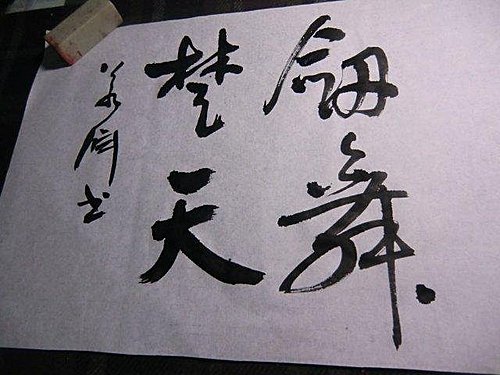 劔舞
楚天
书